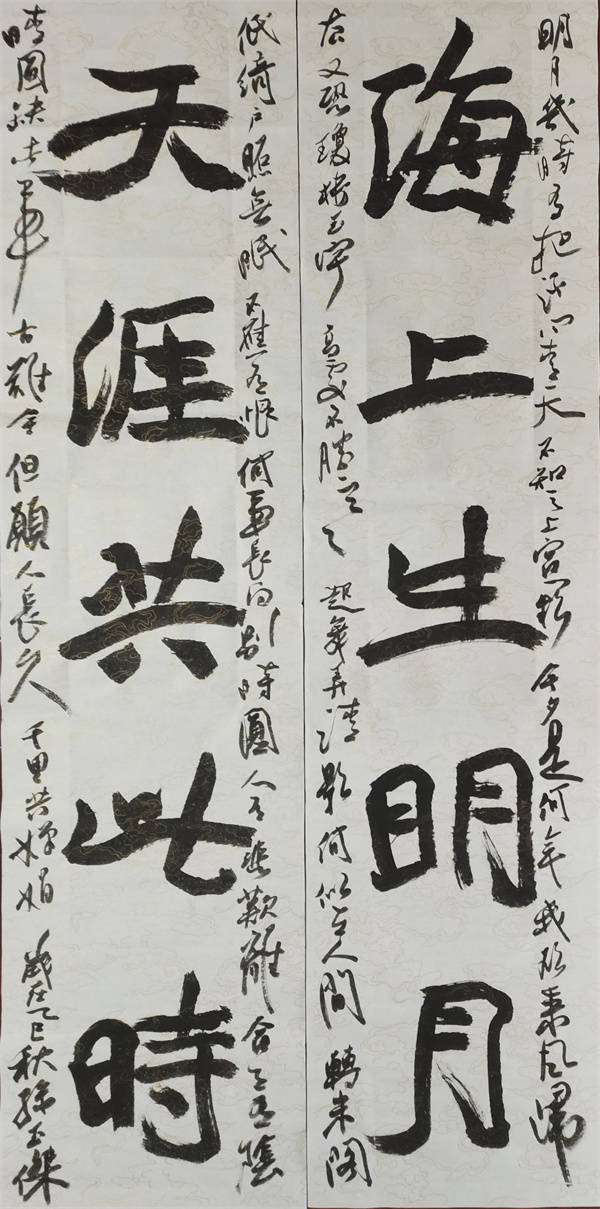 明月幾時有把酒問青天不知天上宮闕今夕是何年我欲乘風歸
海上生明月
去又恐瓊樓玉宇高處不勝寒起舞弄清影何似在人間轉朱閣
低綺戶照無眠不應有恨何事長向別時圓人有悲歡離合月有陰
天涯共此時
晴圓缺此事古難全但願人長久千里共嬋娟歲在乙巳秋孫玉傑